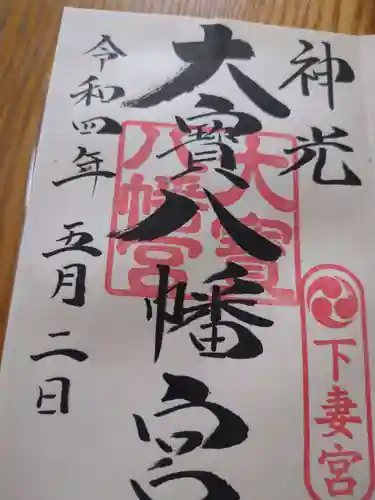 神光
大寳八幡宮
令和四年 五月二日
大寳
八幡宮
下妻宮